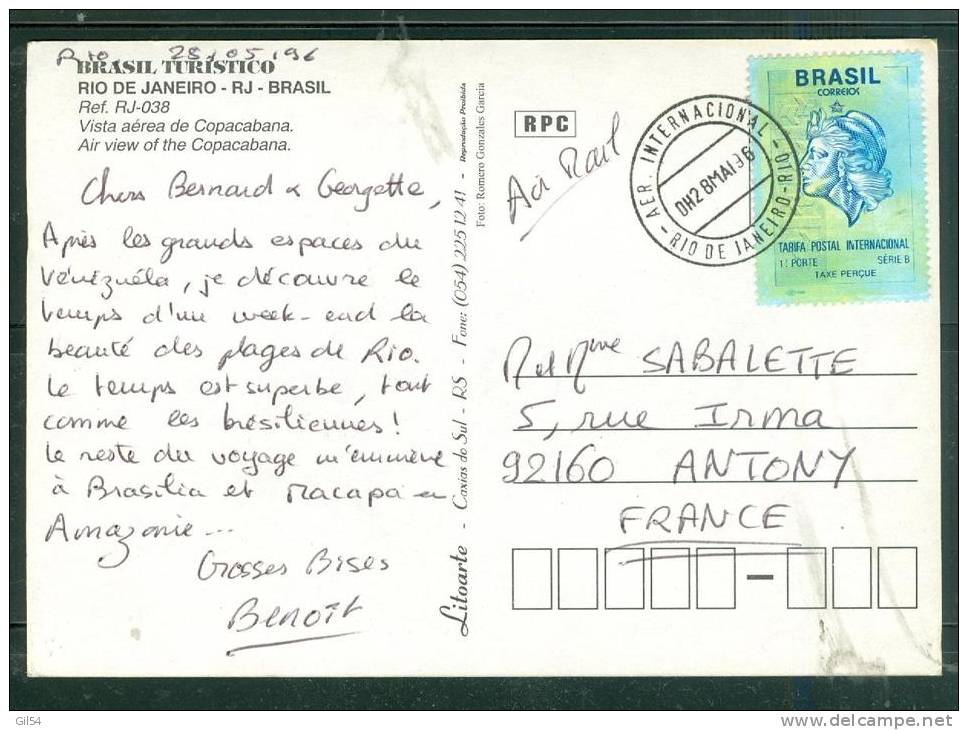 Rio 28/05/96
BRASIL TURÍSTICO
RIO DE JANEIRO - RJ - BRASIL
Ref. RJ-038
Vista aérea de Copacabana.
Air view of the Copacabana.
Chers Bernard & Georgette,
Après les grands espaces du
Vénézuéla, je découvre le
temps d'un week-end la
beauté des plages de Rio.
Le temps est superbe, tout
comme les brésiliennes!
Le reste du voyage m'emmène
à Brasilia et Macapa en
Amazonie...
Grosses Bises
Benoît
Litoarte - Caxias do Sul - RS - Fone: (054) 225 12 41 - Reprodução Proibida
Foto: Romero Gonzales Garcia
RPC
Air Mail
AER. INTERNACIONAL - RIO
DH28MAI96
- RIO DE JANEIRO -
BRASIL
CORREIOS
TARIFA POSTAL INTERNACIONAL
1º PORTE SÉRIE B
TAXE PERÇUE
M et Mme SABALETTE
5, rue Irma
92160 ANTONY
FRANCE
Gil54
www.delcampe.net